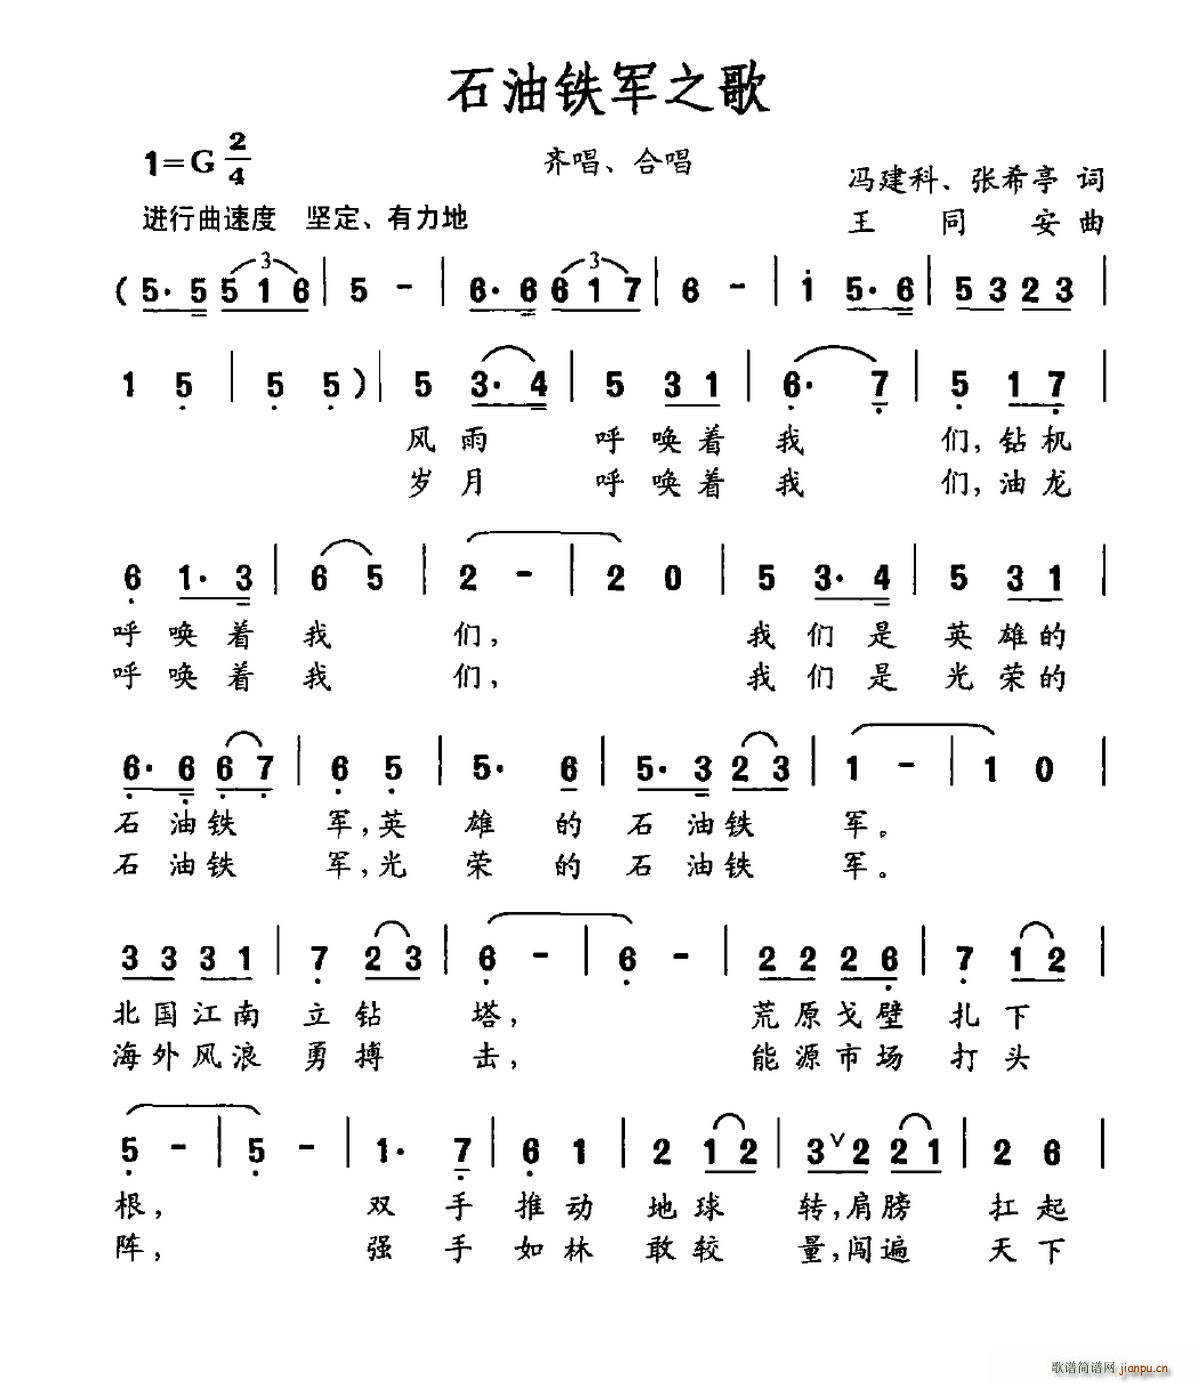 石油铁军之歌
1=G 2/4
齐唱、合唱
冯建科、张希亭 词
进行曲速度 坚定、有力地
王 同 安 曲
3 3
( 5· 5 5 1 6 | 5 - | 6· 6 6 1 7 | 6 - | i 5· 6 | 5 3 2 3 |
1 5 | 5 5 ) | 5 3· 4 | 5 3 1 | 6· 7 | 5 1 7 |
风 雨 呼 唤 着 我 们, 钻 机
岁 月 呼 唤 着 我 们, 油 龙
6 1· 3 | 6 5 | 2 - | 2 0 | 5 3· 4 | 5 3 1 |
呼 唤 着 我 们, 我 们 是 英 雄 的
呼 唤 着 我 们, 我 们 是 光 荣 的
6· 6 6 7 | 6 5 | 5· 6 | 5· 3 2 3 | 1 - | 1 0 |
石 油 铁 军, 英 雄 的 石 油 铁 军。
石 油 铁 军, 光 荣 的 石 油 铁 军。
3 3 3 1 | 7 2 3 | 6 - | 6 - | 2 2 2 6 | 7 1 2 |
北 国 江 南 立 钻 塔, 荒 原 戈 壁 扎 下
海 外 风 浪 勇 搏 击, 能 源 市 场 打 头
5 - | 5 - | 1· 7 | 6 1 | 2 1 2 | 3 ∨ 2 2 1 | 2 6 |
根, 双 手 推 动 地 球 转, 肩 膀 扛 起
阵, 强 手 如 林 敢 较 量, 闯 遍 天 下
歌谱简谱网 jianpu.cn